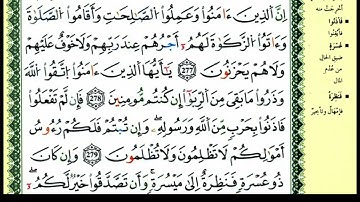 إِنَّ ٱلَّذِينَ ءَامَنُوا۟ وَعَمِلُوا۟ ٱلصَّٰلِحَٰتِ وَأَقَامُوا۟ ٱلصَّلَوٰةَ
وَءَاتَوُا۟ ٱلزَّكَوٰةَ لَهُمْ أَجْرُهُمْ عِندَ رَبِّهِمْ وَلَا خَوْفٌ عَلَيْهِمْ
وَلَا هُمْ يَحْزَنُونَ 277 يَٰٓأَيُّهَا ٱلَّذِينَ ءَامَنُوا۟ ٱتَّقُوا۟ ٱللَّهَ
وَذَرُوا۟ مَا بَقِىَ مِنَ ٱلرِّبَوٰٓا۟ إِن كُنتُم مُّؤْمِنِينَ 278 فَإِن لَّمْ تَفْعَلُوا۟
فَأْذَنُوا۟ بِحَرْبٍ مِّنَ ٱللَّهِ وَرَسُولِهِۦ وَإِن تُبْتُمْ فَلَكُمْ رُءُوسُ
أَمْوَٰلِكُمْ لَا تَظْلِمُونَ وَلَا تُظْلَمُونَ 279 وَإِن كَانَ
ذُو عُسْرَةٍ فَنَظِرَةٌ إِلَىٰ مَيْسَرَةٍ وَأَن تَصَدَّقُوا۟ خَيْرٌ لَّكُمْ
أخرجت منه
فأذنوا
فأيقنوا
عسرة
ضيق الحال
من عدم
المال
فنظرة
فإمهال وتأخير